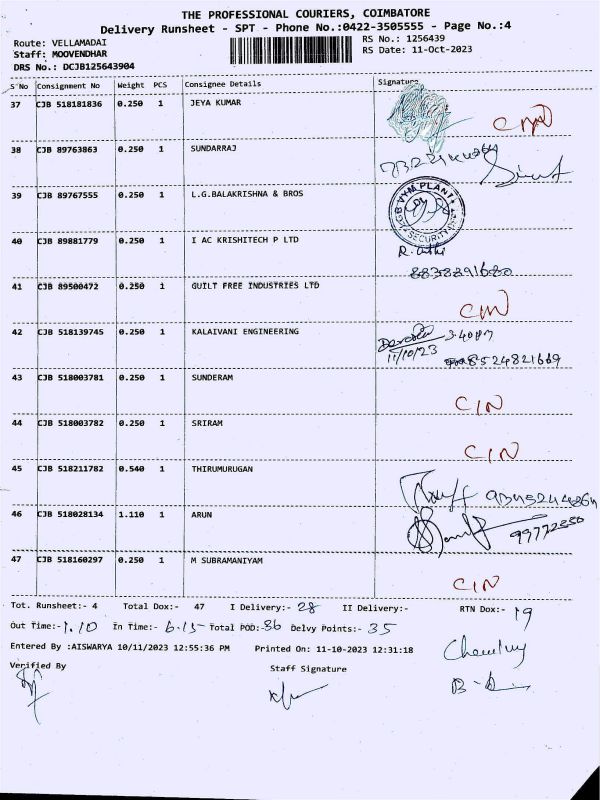 THE PROFESSIONAL COURIERS, COIMBATORE
Delivery Runsheet - SPT - Phone No.:0422-3505555 - Page No.:4
Route: VELLAMADAI RS No.: 1256439
Staff: MOOVENDHAR RS Date: 11-Oct-2023
DRS No.: DCJB125643904
S'No Consignment No Weight PCS Consignee Details Signature
37 CJB 518181836 0.250 1 JEYA KUMAR
38 CJB 89763863 0.250 1 SUNDARRAJ
39 CJB 89767555 0.250 1 L.G.BALAKRISHNA & BROS PLANT SECURITY
40 CJB 89881779 0.250 1 I AC KRISHITECH P LTD
8838891680
41 CJB 89500472 0.250 1 GUILT FREE INDUSTRIES LTD
42 CJB 518139745 0.250 1 KALAIVANI ENGINEERING 3.40pm
11/10/23 8524821669
43 CJB 518003781 0.250 1 SUNDERAM CIN
44 CJB 518003782 0.250 1 SRIRAM CIN
45 CJB 518211782 0.540 1 THIRUMURUGAN 9345244864
46 CJB 518028134 1.110 1 ARUN
47 CJB 518160297 0.250 1 M SUBRAMANIYAM CIN
Tot. Runsheet:- 4 Total Dox:- 47 I Delivery:- 28 II Delivery:- RTN Dox:- 19
Out Time:- 1.10 In Time:- 6.15 Total POD:- 86 Delvy Points:- 35
Entered By :AISWARYA 10/11/2023 12:55:36 PM Printed On: 11-10-2023 12:31:18
Verified By Staff Signature